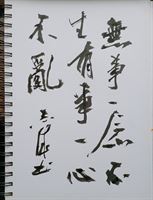 無事一念不
生有事一心
不亂